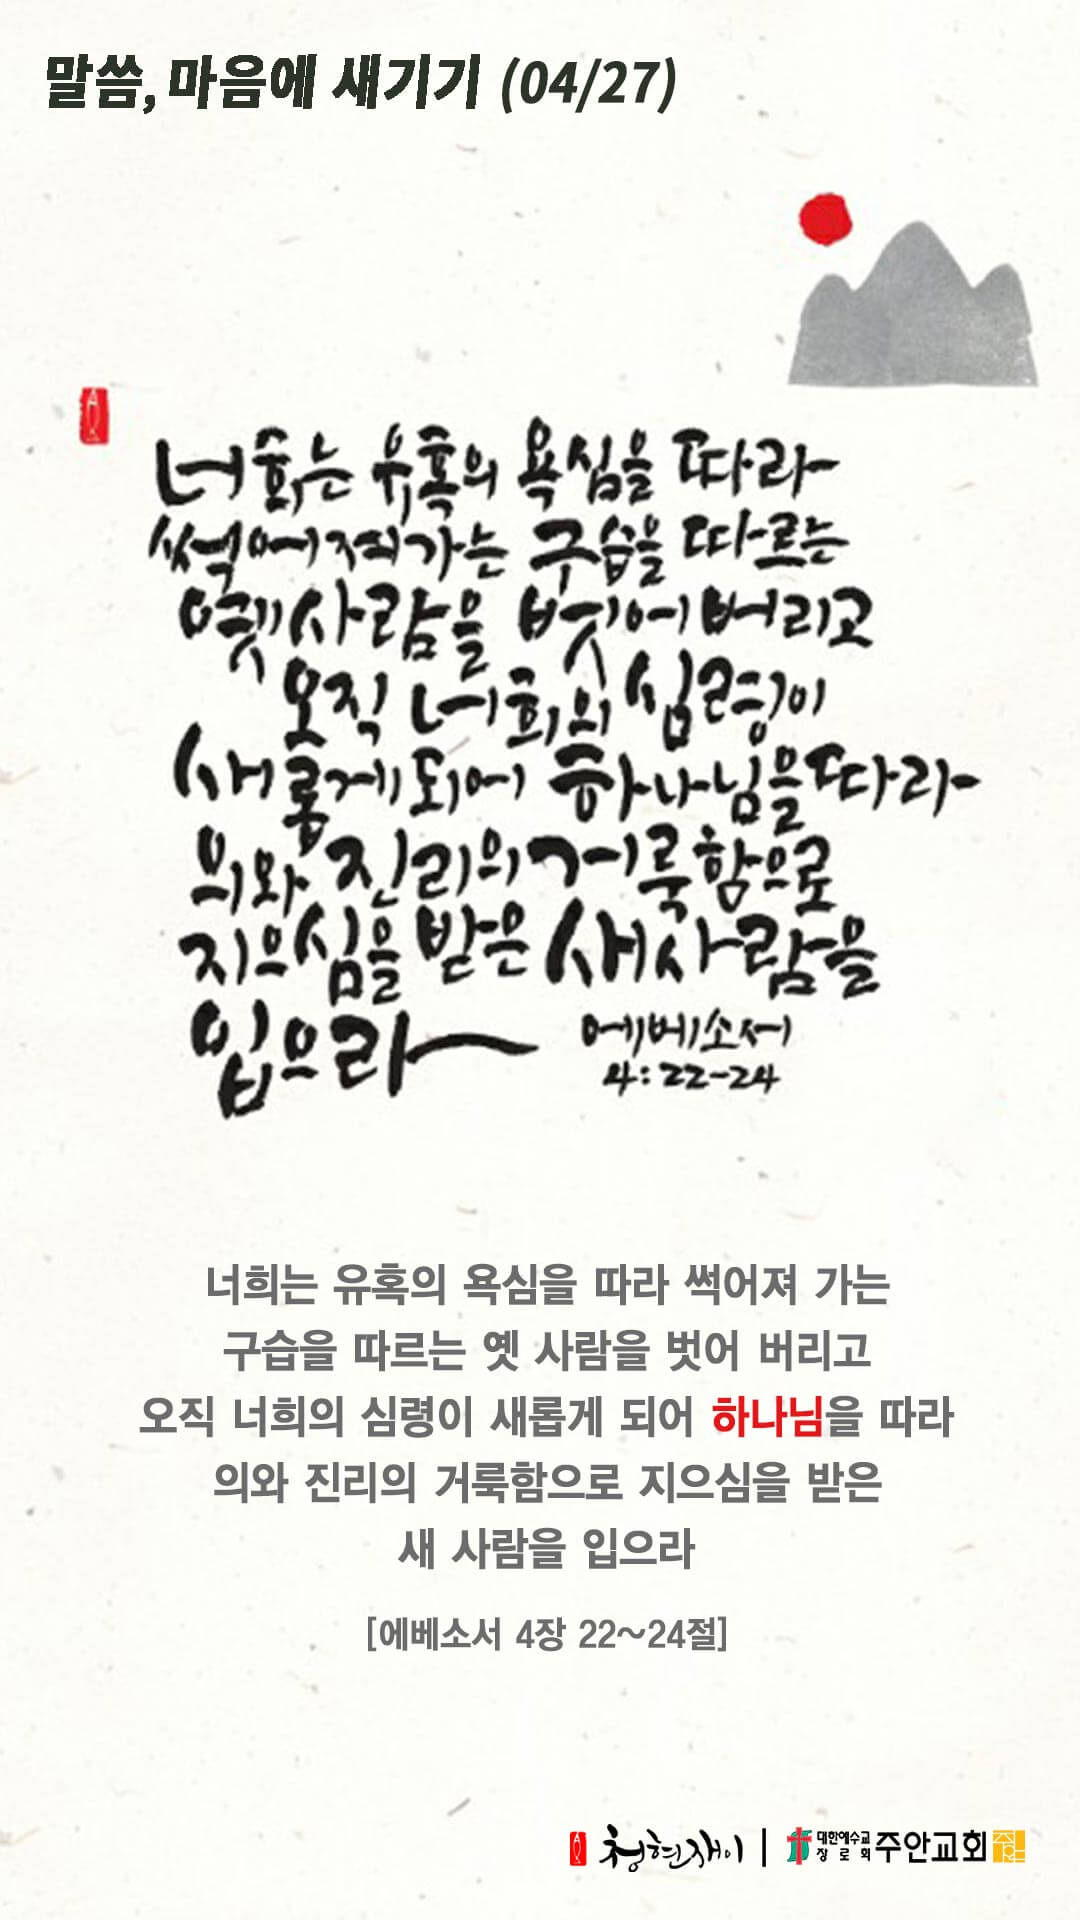 말씀, 마음에 새기기 (04/27)
너희는 유혹의 욕심을 따라
썩어져가는 구습을 따르는
옛사람을 벗어버리고
오직 너희의 심령이
새롭게되어 하나님을따라
의와 진리의 거룩함으로
지으심을 받은 새사람을
입으라
에베소서
4:22-24
너희는 유혹의 욕심을 따라 썩어져 가는
구습을 따르는 옛 사람을 벗어 버리고
오직 너희의 심령이 새롭게 되어 하나님을 따라
의와 진리의 거룩함으로 지으심을 받은
새 사람을 입으라
[에베소서 4장 22~24절]
청현재이 | 대한예수교 장로회 주안교회